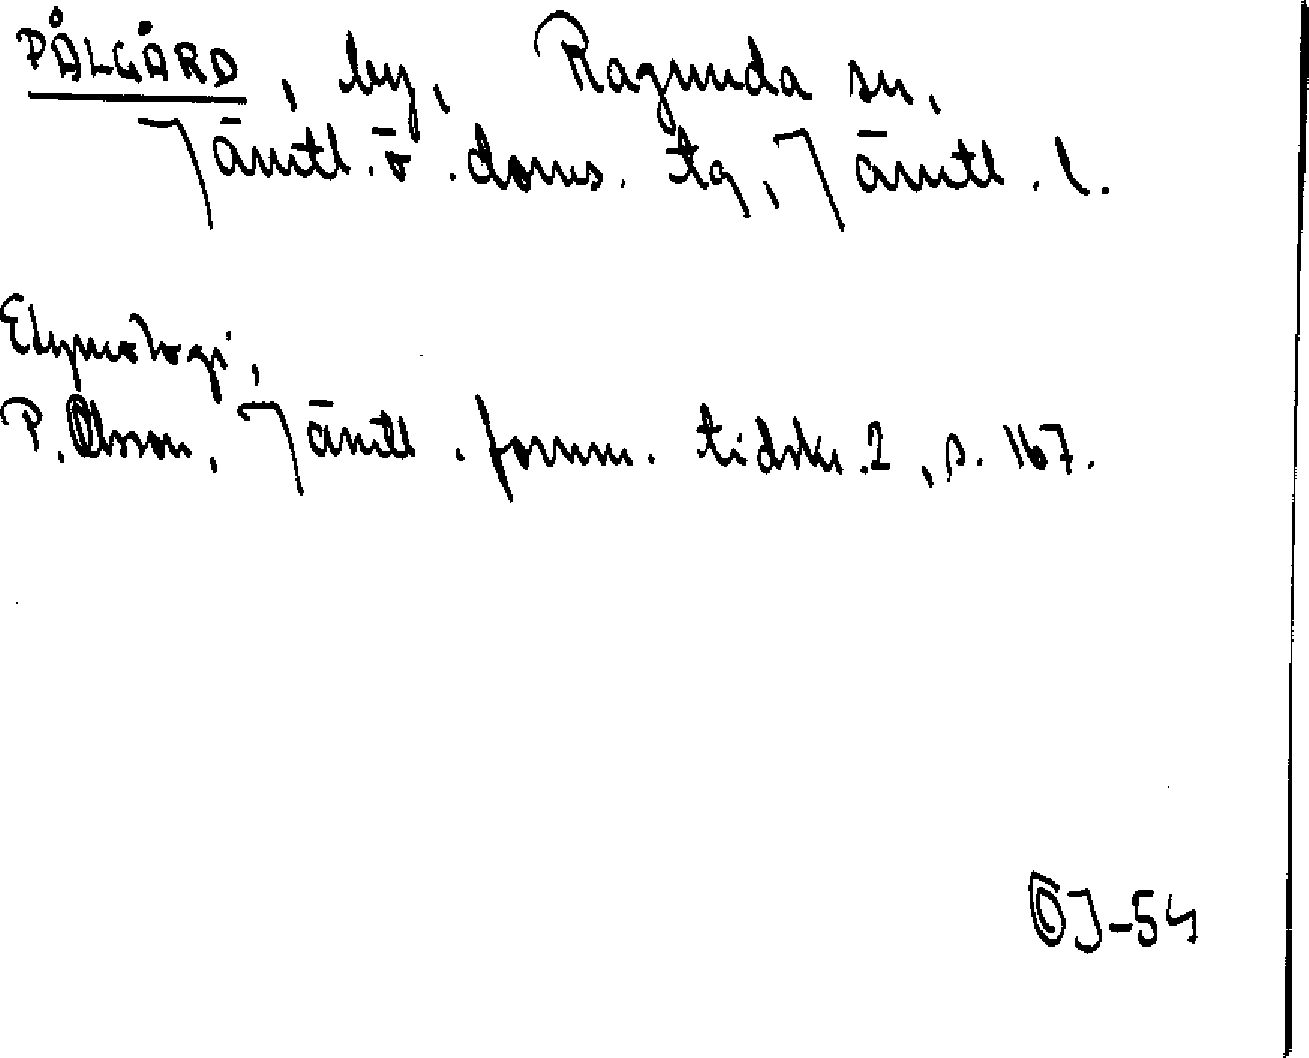 PÅLGÅRD, by, Ragunda sn,
Jämtl. ö. doms. tg, Jämtl. l.
Etymologi,
P. Olsson, Jämtl. fornm. tidskr. 2, s. 167.
OJ-54